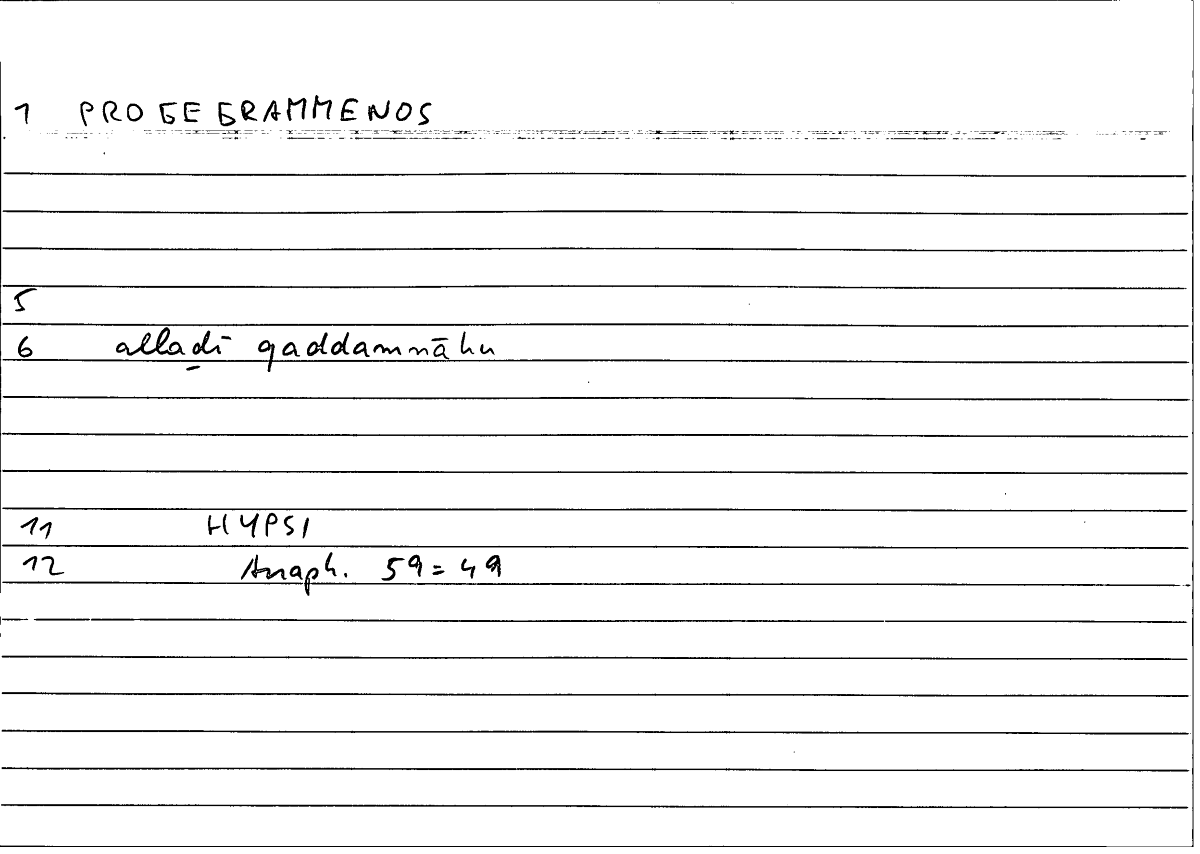 1 PROGEGRAMMENOS
5
6 allaḏī qaddamnāhu
11 HYPSI
12 Anaph. 59 = 49